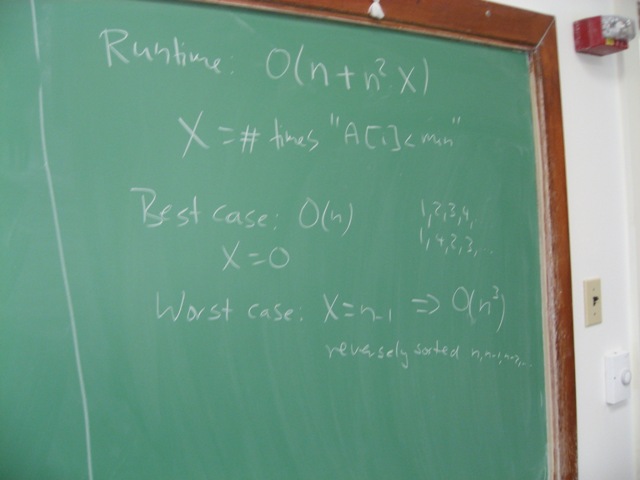 Runtime: O(n + n² · X)
X = # times "A[i] < min"
Best case: O(n)
X = 0
1, 2, 3, 4, ...
1, 4, 2, 3, ...
Worst case: X = n-1 ⇒ O(n³)
reversely sorted n, n-1, n-2, ...